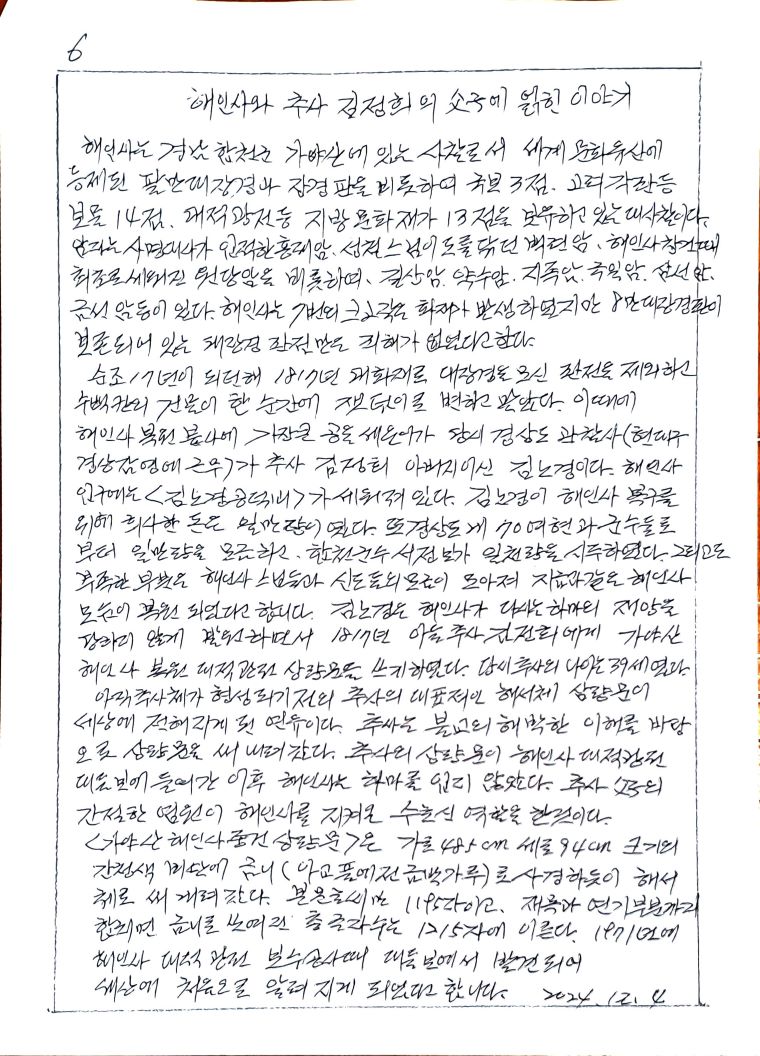 6
해인사와 추사 김정희의 父子에 얽힌 이야기
해인사는 경남 합천군 가야산에 있는 사찰로서 세계문화유산에
등재된 팔만대장경과 장경판을 비롯하여 국보 3점. 고려각판등
보물 14점. 대적광전등 지방문화재가 13점을 보유하고 있는 대사찰이다.
암자는 사명대사가 입적한 홍제암. 성철스님이 도를 닦던 백련암. 해인사 창건때
최초로 세워진 원당암을 비롯하여. 길상암. 약수암. 지족암. 국일암. 삼선암.
금선암등이 있다. 해인사는 7번의 크고작은 화재가 발생하였지만 8만대장경판이
보존되어 있는 대장경 판전만은 피해가 없었다고 한다.
순조 17년이 되던해 1817년 대화재로 대장경을 모신 판전을 제외하고
수백칸의 건물이 한 순간에 잿더미로 변하고 말았다. 이때에
해인사 복원 불사에 가장큰 공을 세운이가 당시 경상도 관찰사(현대구
경상감영에 근무)가 추사 김정희 아버지이신 김노경이다. 해인사
입구에는 <김노경공덕비>가 세워져 있다. 김노경이 해인사 복구를
위해 희사한 돈은 일만량이 였다. 또 경상도 내 70여현과 군수들로
부터 일만량을 모금하고. 합천군수 서정보가 일천량을 시주하였다. 그리고도
부족한 부분은 해인사 스님들과 신도들의 모금이 모아져 지금과같은 해인사
모습이 복원 되었다고 합니다. 김노경은 해인사가 다시는 화마의 재앙을
당하지 않게 발원하면서 1817년 아들 추사 김정희에게 가야산
해인사 복원 대적광전 상량문을 쓰게하였다. 당시 추사의 나이는 39세였다.
아직 추사체가 형성되기전의 추사의 대표적인 해서체 상량문이
세상에 전해지게 된 연유이다. 추사는 불교의 해박한 이해를 바탕
으로 상량문을 써 내려 갔다. 추사의 상량문이 해인사 대적광전
대들보에 들어간 이후 해인사는 화마를 입지 않았다. 추사 父子의
간절한 염원이 해인사를 지켜온 수호신 역할을 한것이다.
<가야산 해인사 중건 상량문>은 가로 485cm 세로 94cm 크기의
감청색 비단에 금니(아교풀에 전 금박가루)로 사경하듯이 해서
체로 써 내려 갔다. 본문글씨만 1195자이고. 제목과 연기부분까지
합하면 금니로 쓰여진 총 글자수는 1215자에 이른다. 1971년에
해인사 대적광전 보수공사때 대들보에서 발견되어
세상에 처음으로 알려 지게 되었다고 합니다. 2024. 12. 4